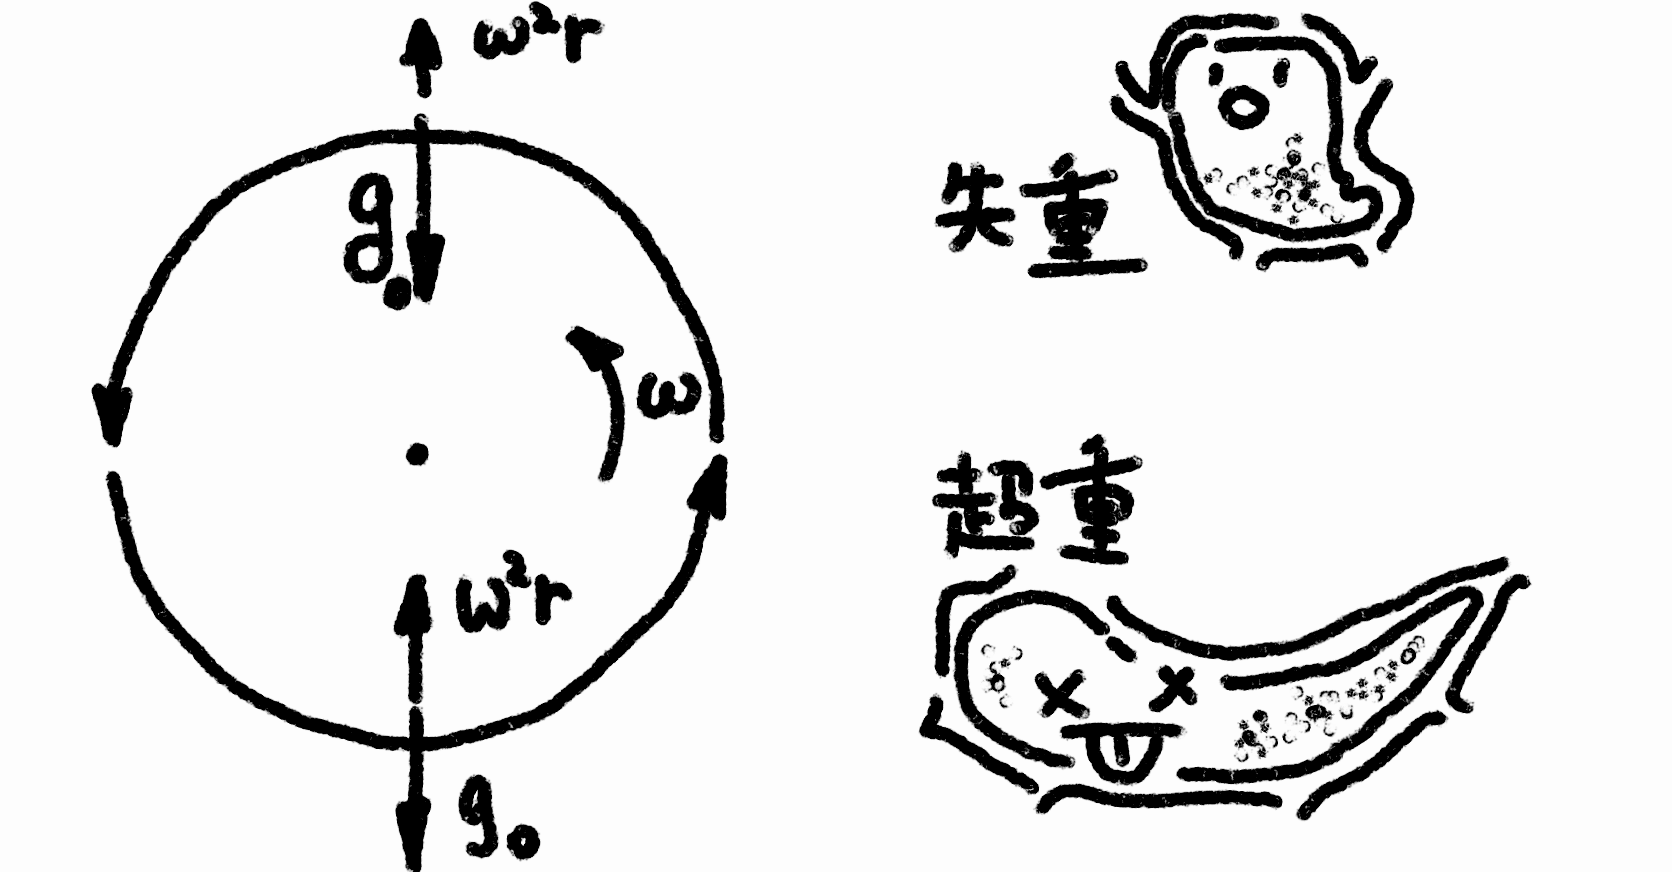 ω²r
g₀
ω
ω²r
g₀
失重
超重